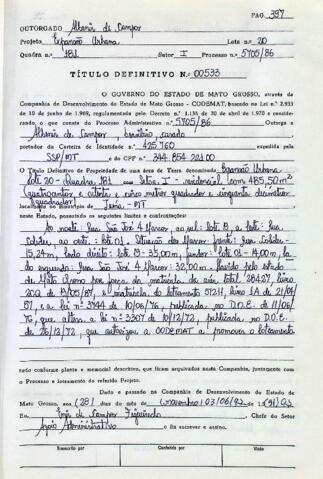 PAG. 397
OUTORGADO Albanir de Campos
Projeto Expansão Urbana Lote n.º 20
Quadra n.º 181 Setor I Processo n.º 5705/86
TÍTULO DEFINITIVO N.º 00533
O GOVERNO DO ESTADO DE MATO GROSSO, através da
Companhia de Desenvolvimento do Estado de Mato Grosso - CODEMAT, baseado na Lei n.º 2.933
de 10 de junho de 1.969, regulamentada pelo Decreto n.º 1.138 de 30 de abril de 1970 e consideran-
do, o que consta do Processo Administrativo n.º 5705/86 Outorga a
Albanir de Campos, brasileiro, casado
portador da Carteira de Identidade n.º 425760 expedida pela
SSP/MT e do CPF n.º 344 854 221 00
O Título Definitivo de Propriedade de uma área de Terra denominada Expansão Urbana
Lote 20 - Quadra 181 - Setor I - residencial com 485,50 m²
(quatrocentos e oitenta e cinco metros quadrados e cinquenta decímetros
quadrados)
localizado no município de - MT
neste Estado, possuindo os seguintes limites e confrontações:
Ao norte: Rua São José 4 Marcos, ao sul: lote B, a leste: Rua
Colider, ao oeste: lote 01, Situação dos Marcos: frente: Rua Colider -
15,24m, lado direito: lote 19 - 35,00m, fundos: lote 01 - 14,00m, la-
do esquerdo: Rua São José 4 Marcos: 32,00m. Havido pelo estado
de Mato Grosso por força da matrícula
livro
e a lei n.º 3744 de 10/06/76, publicada no D.O.E. de 11/06/
76, que altera a lei n.º 3307 de 10/12/72, publicada no D.O.E.
de 26/12/72, que autorizou a CODEMAT a promover o loteamento
tado conforme planta e memorial descritivo, que ficam arquivados nesta Companhia, juntamente com
o Processo e loteamento do referido Projeto.
Dado e passado na Companhia de Desenvolvimento do Estado de
Mato Grosso, aos (28) dias do mês de novembro
Eu, de Campos Figueiredo Chefe do Setor
Apoio Administrativo o fiz escrever e assino.
Transcrito por Conferido por Visto